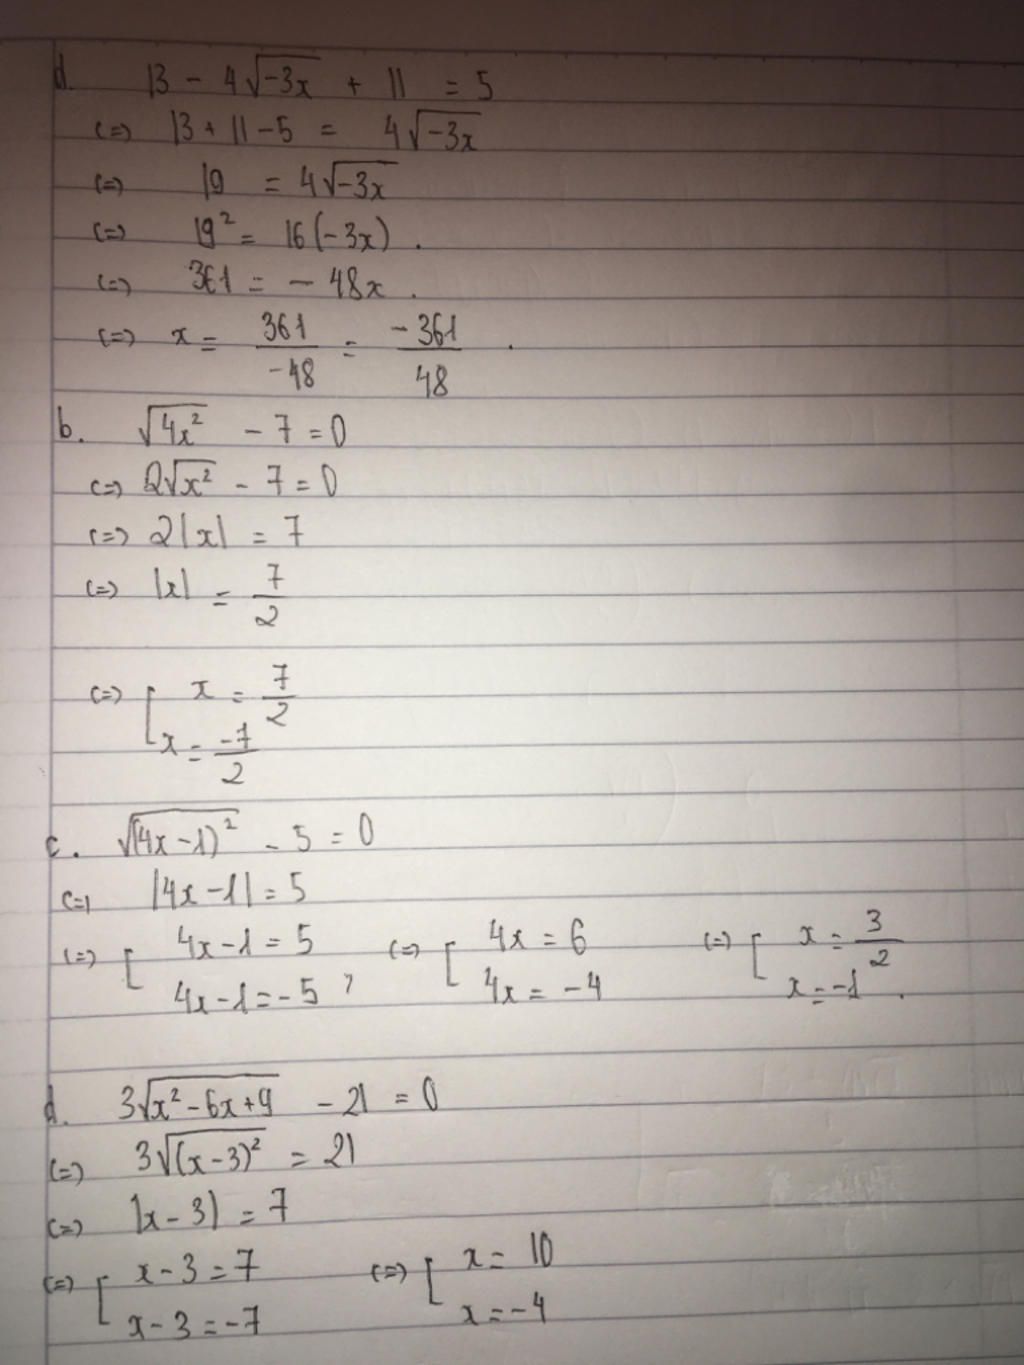 d. 13 - 4√-3x + 11 = 5
(=) 13 + 11 - 5 = 4√-3x
(=) 19 = 4√-3x
(=) 19² = 16(-3x).
(=) 361 = - 48x.
(=) x = 361/-48 = -361/48.
b. √4x² - 7 = 0
(=) 2√x² - 7 = 0
(=) 2|x| = 7
(=) |x| = 7/2
(=) [ x = 7/2
x = -7/2
c. √(4x-1)² - 5 = 0
(=) |4x-1| = 5
(=) [ 4x-1 = 5 (=) [ 4x = 6 (=) [ x = 3/2
4x-1 = -5 4x = -4 x = -1.
d. 3√x²-6x+9 - 21 = 0
(=) 3√(x-3)² = 21
(=) |x-3| = 7
(=) [ x-3 = 7 (=) [ x = 10
x-3 = -7 x = -4